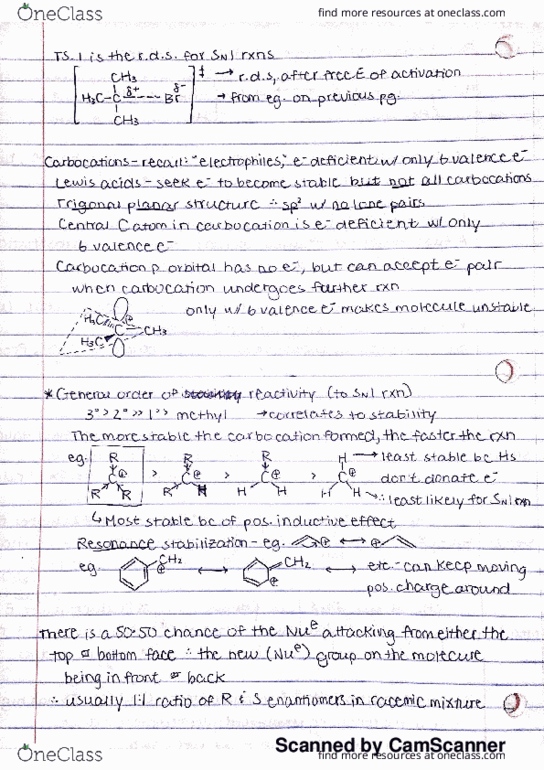 OneClass
find more resources at oneclass.com
TS. 1 is the r.d.s. for SN1 rxns
CH3
‡ → r.d.s, after free E of activation
H3C-C δ+ ---- Br δ-
→ from eg. on previous pg.
CH3
Carbocations - recall: "electrophiles," e- deficient w/ only 6 valence e-
Lewis acids - seek e- to become stable but not all carbocations
Trigonal planar structure ∴ sp² w/ no lone pairs
Central C atom in carbocation is e- deficient w/ only
6 valence e-
Carbocation p orbital has no e-, but can accept e- pair
when carbocation undergoes further rxn
only w/ 6 valence e- makes molecule unstable
H3C C ⊕ CH3
H3C
* General order of stability reactivity (to SN1 rxn)
3° > 2° >> 1° >> methyl → correlates to stability
The more stable the carbocation formed, the faster the rxn
eg. R R R H → least stable bc Hs
C⊕ > C⊕ > C⊕ > C⊕ don't donate e-
R R R H H H H H ∴ least likely for SN1 rxn
↳ Most stable bc of pos. inductive effect
Resonance stabilization - eg. ⊕ ↔ ⊕
eg. CH2 ⊕ ↔ CH2 ⊕ ↔ etc - can keep moving
pos. charge around
There is a 50:50 chance of the Nu⊖ attacking from either the
top or bottom face ∴ the new (Nu⊖) group on the molecule
being in front or back
∴ usually 1:1 ratio of R & S enantiomers in racemic mixture
Scanned by CamScanner
OneClass
find more resources at oneclass.com